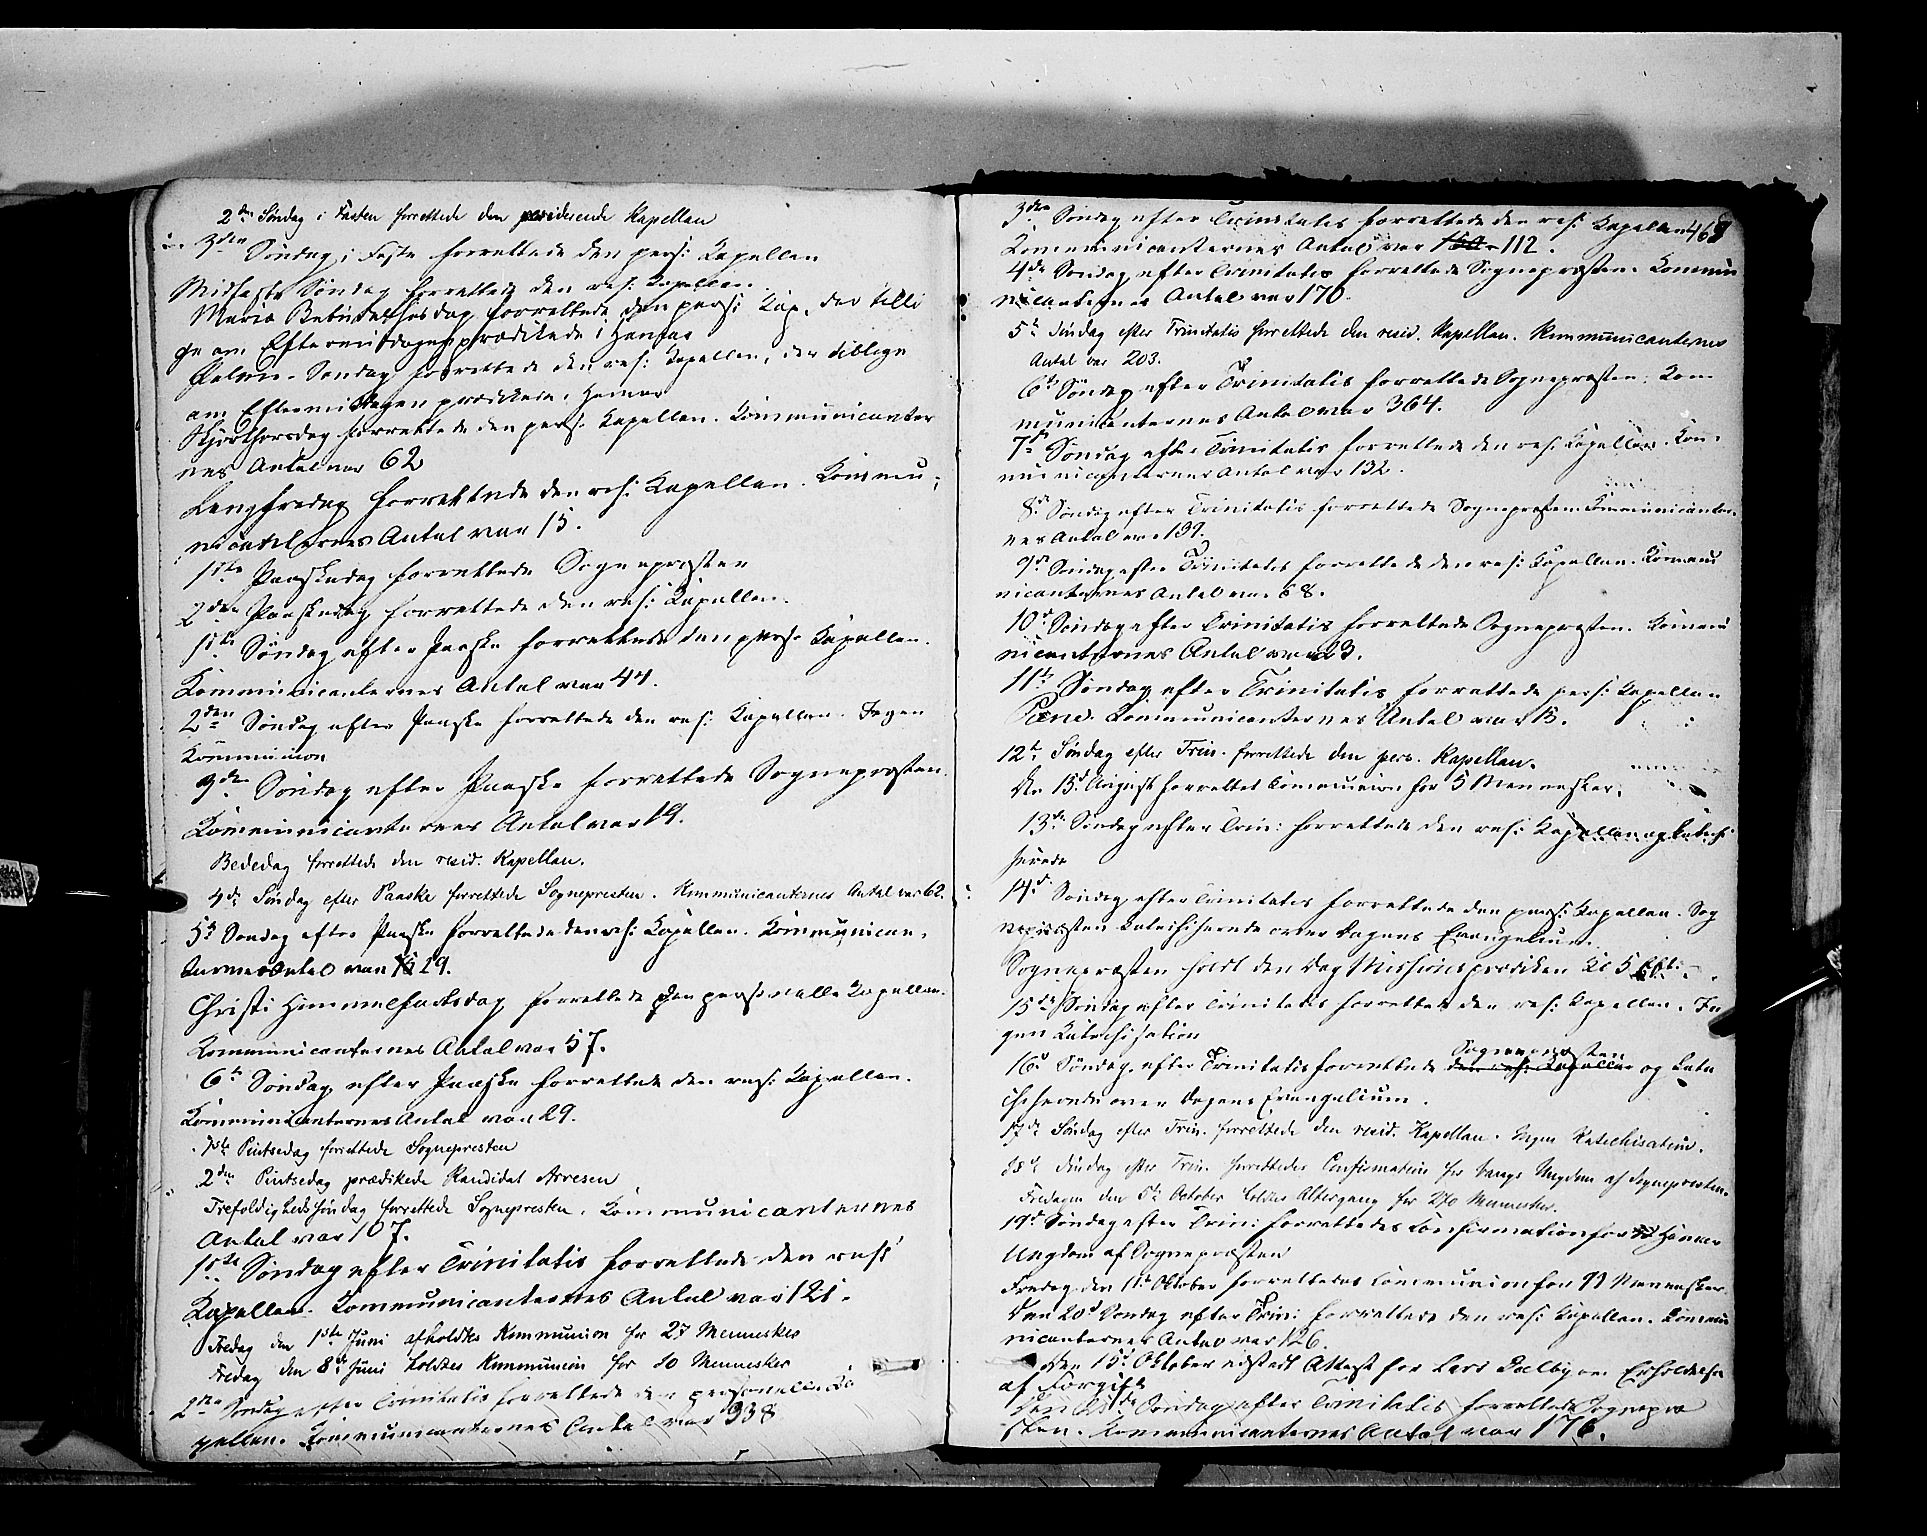 2den Søndag i Fasten forrettede den residerende Kapellan
3den Søndag i Faste forrettede den pers: Kapellan
Midfaste Søndag forrettede den res: Kapellan.
Mariæ Bebudelsesdag forrettede den pers: Kap. der tilli
ge om Eftermiddagen prædikede i Hamar
Palme-Søndag forrettede den res: Kapellan, der tillige
om Eftermiddagen prædikede i Hamar
Skjærthorsdag forrettede den pers: Kapellan. Kommunicanter
nes Antal var 62
Langfredag forrettede den res: Kapellan. Kommu-
nicanternes Antal var 15.
1ste Paaskedag forrettede Sognepræsten
2den Paaskedag forrettede den res: Kapellan.
1ste Søndag efter Paaske forrettede den pers: Kapellan.
Kommunicanternes Antal var 44.
2den Søndag efter Paaske forrettede den res: Kapellan. Ingen
Kommunion
3den Søndag efter Paaske forrettede Sognepræsten.
Kommunicanternes Antal var 14.
Bededag forrettede den resid. Kapellan.
4de Søndag efter Paaske forrettede Sognepresten. Kommunicanternes Antal var 62.
5te Søndag efter Paaske forrettede den res: Kapellan. Kommunican-
ternes Antal var 29.
Christi Himmelfartsdag forrettede den personelle Kapellan.
Kommunicanternes Antal var 57.
6te Søndag efter Paaske forrettede den res: Kapellan.
Kommunicanternes Antal var 29.
1ste Pintsedag forrettede Sognepresten
2den Pintsedag prædikede Kandidat Arvesen
Trefoldighedssøndag forrettede Sognepresten. Kommunicanternes
Antal var 107.
1ste Søndag efter Trinitatis forrettede den res:
Kapellan. Kommunicanternes Antal var 121.
Fredag den 1ste Juni afholdtes Kommunion for 27 Mennesker
Fredag den 8de Juni holdtes Kommunion for 10 Mennesker
2den Søndag efter Trinitatis forrettede den personelle Ka
pellan. Kommunicanternes Antal var 338
3die Søndag efter Trinitatis forrettede den res: Kapellan 468
Kommunicanternes Antal var 112.
4de Søndag efter Trinitatis forrettede Sognepræsten. Kommu
nicanternes Antal var 170.
5te Søndag efter Trinitatis forrettede den resid. Kapellan. Kommunicanternes
Antal var 203.
6te Søndag efter Trinitatis forrettede Sognepræsten. Kom
municanternes Antal var 364.
7de Søndag efter Trinitatis forrettede den res: Kapellan. Kom-
municanternes Antal var 132.
8de Søndag efter Trinitatis forrettede Sognepræsten Kommunicanter-
nes Antal var 139.
9de Søndag efter Trinitatis forrettede den res: Kapellan. Kommu
nicanternes Antal var 68.
10d Søndag efter Trinitatis forrettede Sognepræsten. Kommu
nicanternes Antal var 23.
11te Søndag efter Trinitatis forrettede pers: Kapellan
Kommunicanternes Antal var 13.
12te Søndag efter Trin. forrettede den pers. Kapellan.
Den 15d August forrettet Communion for 5 Mennesker.
13de Søndag efter Trin: forrettede den res: Kapellan og katechi
serede
14d Søndag efter Trinitatis forrettede den pers: Kapellan. Sog
nepræsten katechiserede over Dagens Evangelium.
Sognepræsten holdt den Dag Missionsprædiken Kl 5
15de Søndag efter Trinitatis forrettede den res: Kapellan. In
gen Katechisation
16d Søndag efter Trinitatis forrettede den res: Kapellan Sognepræsten og kate
chiserede over Dagens Evangelium.
17de Søndag efter Trin. forrettede den resid. Kapellan. Ingen Katechisation.
18de Søndag efter Trin. forrettedes Confirmation for Vangs Ungdom af Sognepresten.
Fredagen den 5te October holdtes Altergang for 270 Mennesker.
19d Søndag efter Trin: forrettedes Confirmation for Hamar
Ungdom af Sognepræsten
Fredag den Oktober forrettedes Communion for 93 Mennesker.
Den 20d Søndag efter Trin: forrettede den res: Kapellan. Kommu
nicanternes Antal var 126.
Den 15d Oktober udstedt Attest for Lars Dælby om Erholdelse
af Forgift
Søndag efter Trinitatis forrettede Sognepræ
sten. Kommunicanternes Antal var 176.